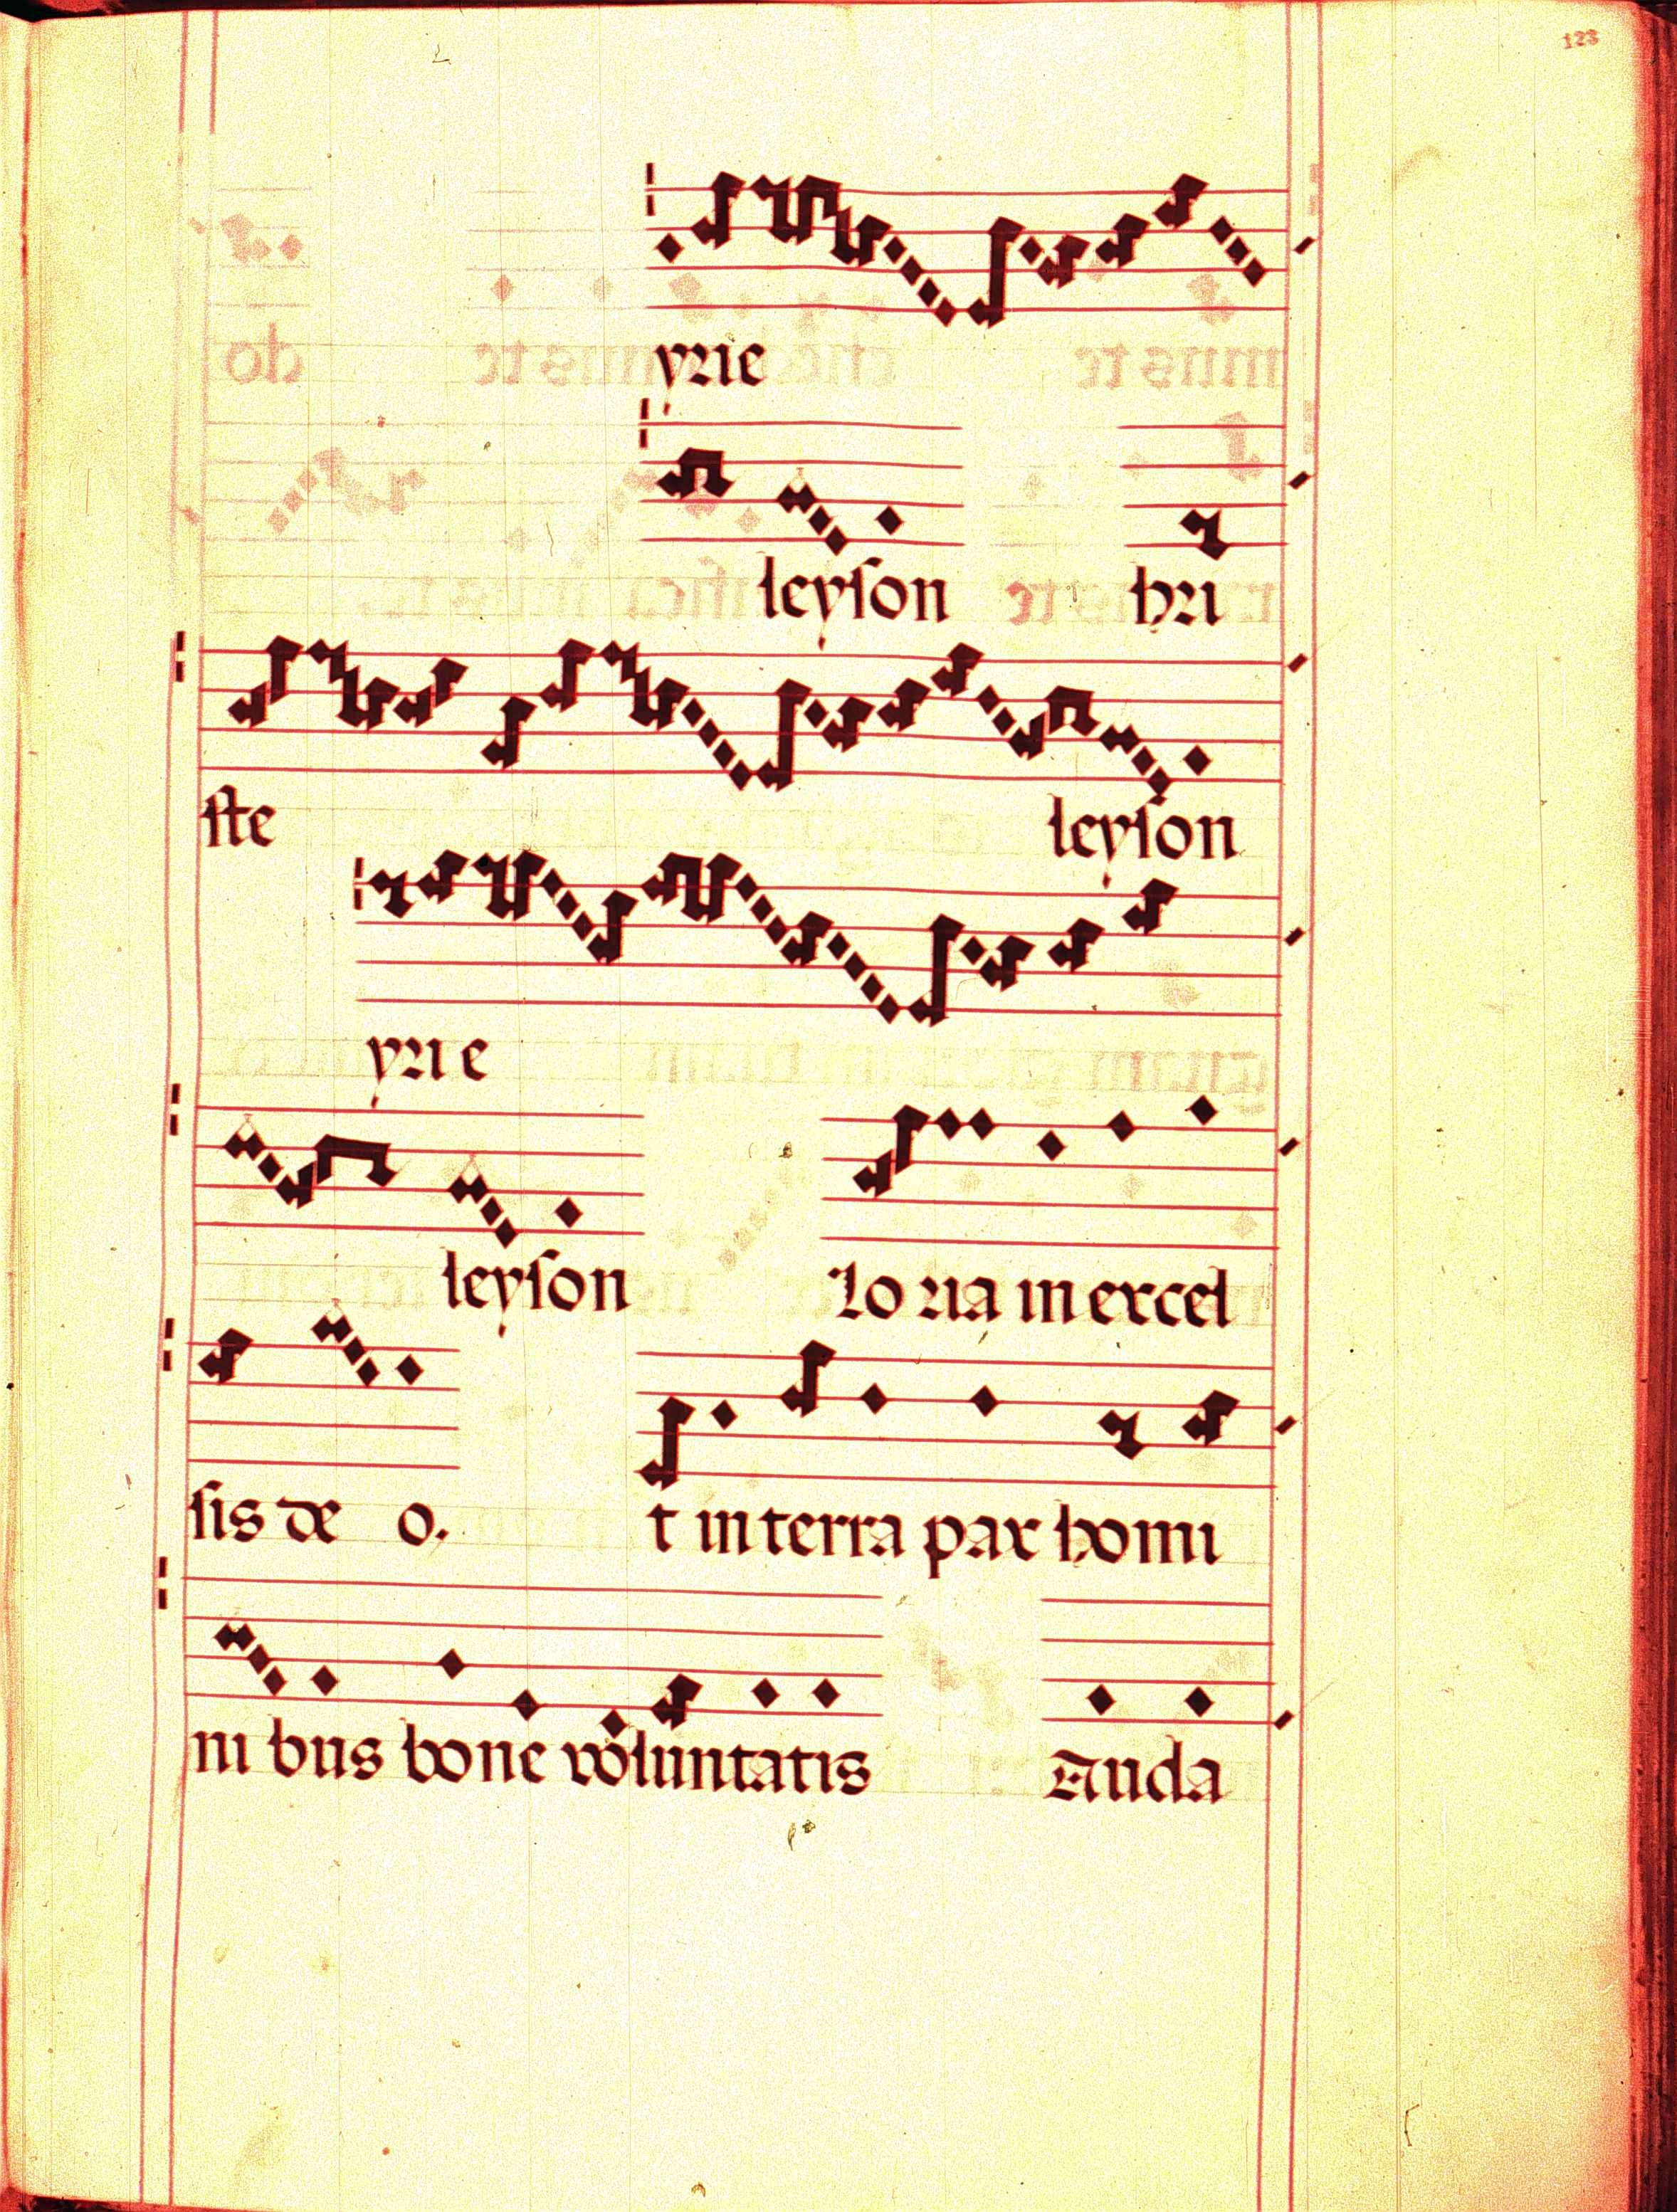 123
yrie
leyson hri
ste leyson
yrie
leyson lo ria in excel
sis de o. t in terra pax homi
ni bus bone voluntatis auda